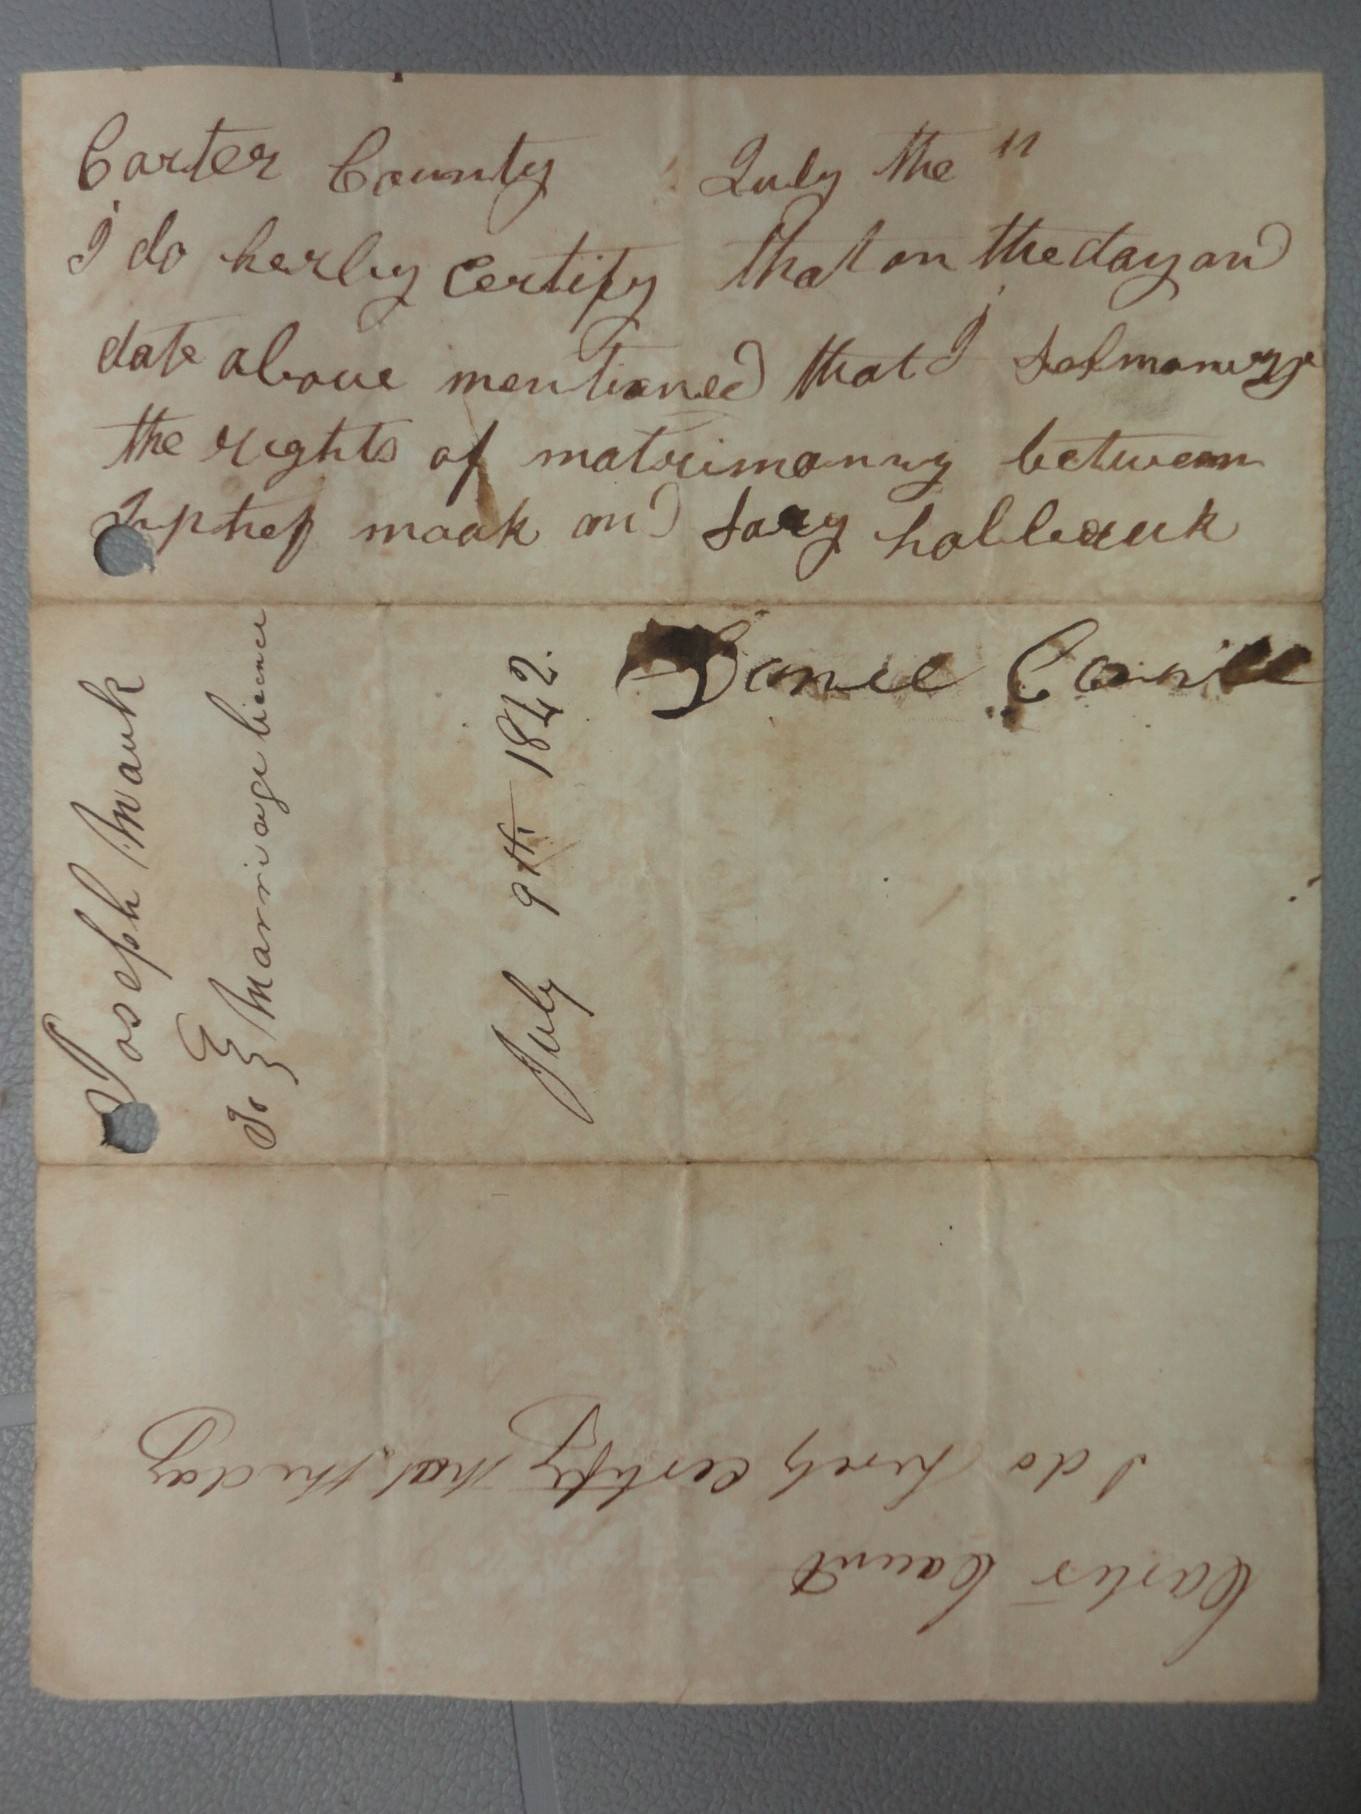 Carter County July the 11
I do herby certify that on the day and
date above mentioned that I
the rights of matrimonny between
maak and Sary
Joseph Mauk
To } Marriage licence
July 9th 1842.
Carter Count
I do herely certify that the day